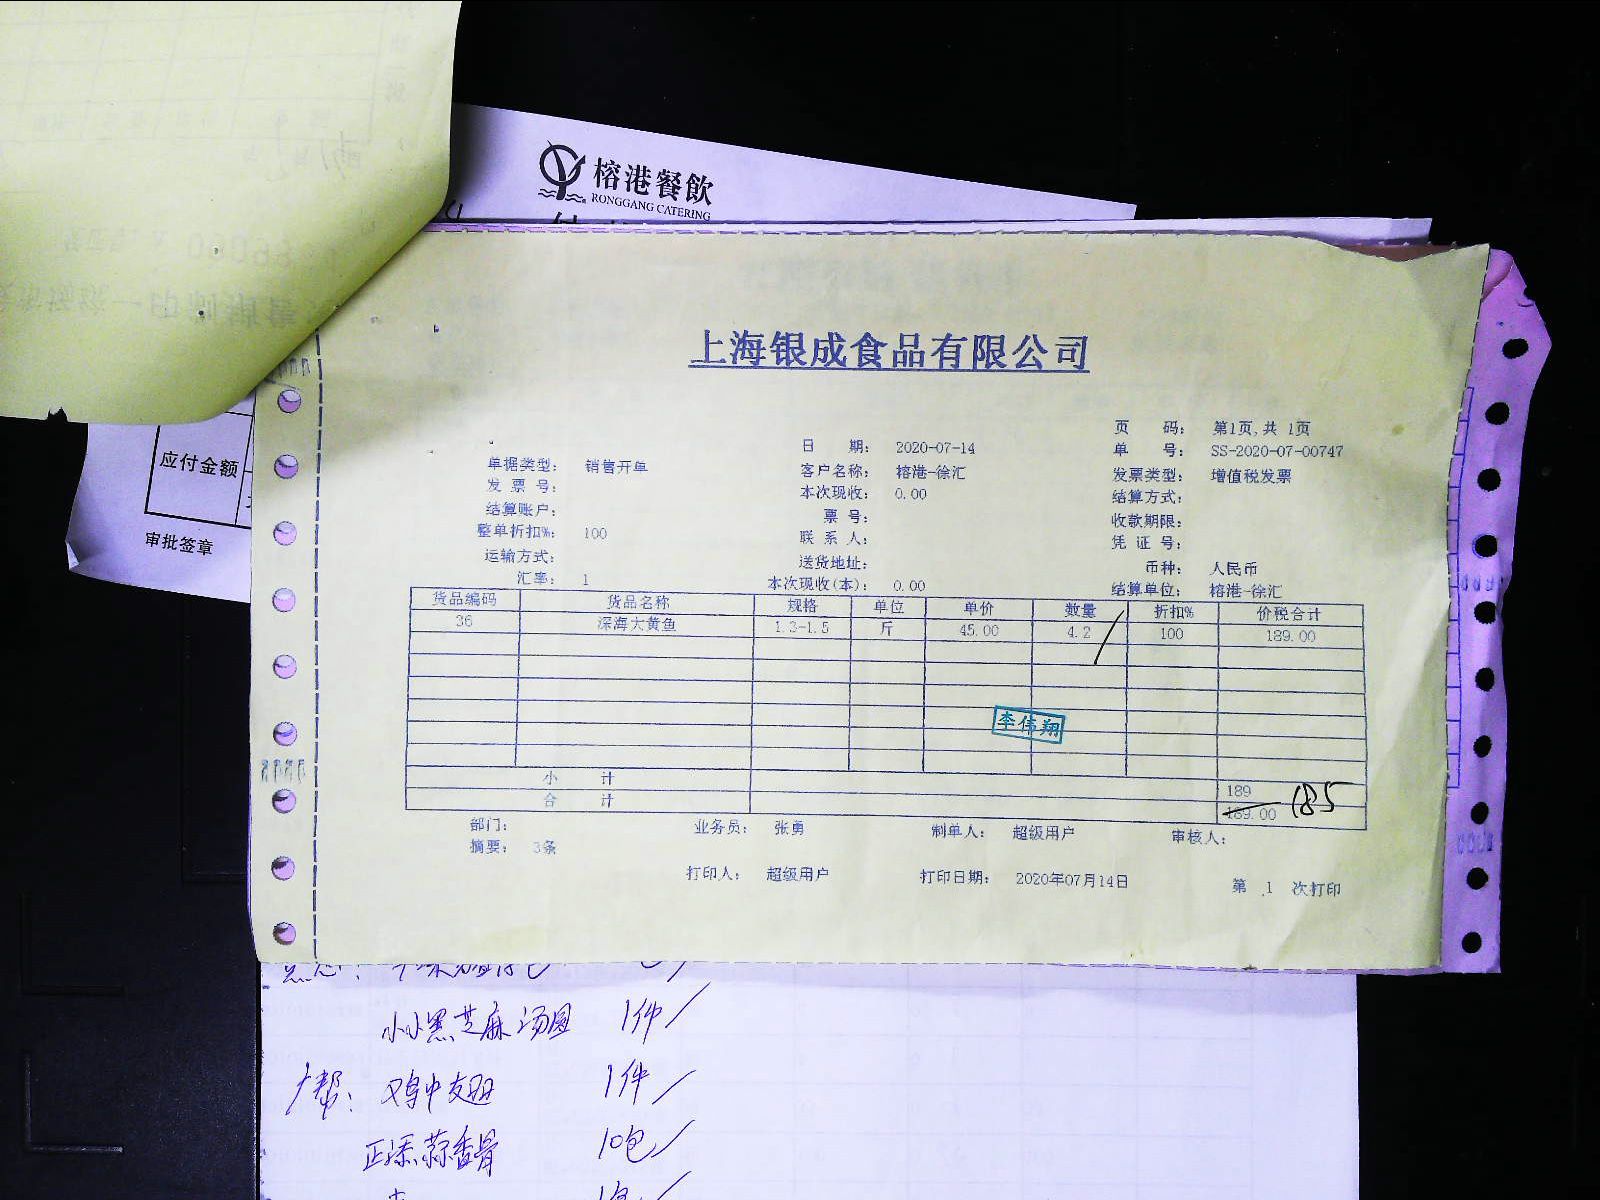 榕港餐飲
RONGGANG CATERING
上海银成食品有限公司
页 码： 第1页,共 1页
日 期： 2020-07-14 单 号： SS-2020-07-00747
单据类型： 销售开单 客户名称： 榕港-徐汇 发票类型： 增值税发票
发 票 号： 本次现收： 0.00 结算方式：
结算账户： 票 号： 收款期限：
整单折扣%： 100 联 系 人： 凭 证 号：
运输方式： 送货地址： 币种： 人民币
汇率： 1 本次现收(本)： 0.00 结算单位： 榕港-徐汇
货品编码 货品名称 规格 单位 单价 数量 折扣% 价税合计
36 深海大黄鱼 1.3-1.5 斤 45.00 4.2 100 189.00
李伟翔
小 计 189
合 计 189.00 185
部门： 业务员： 张勇 制单人： 超级用户 审核人：
摘要： 3条
打印人： 超级用户 打印日期： 2020年07月14日 第 1 次打印
应付金额
审批签章
小小黑芝麻汤圆 1件
广帮： 鸡中翅 1件
蒜香骨 10包